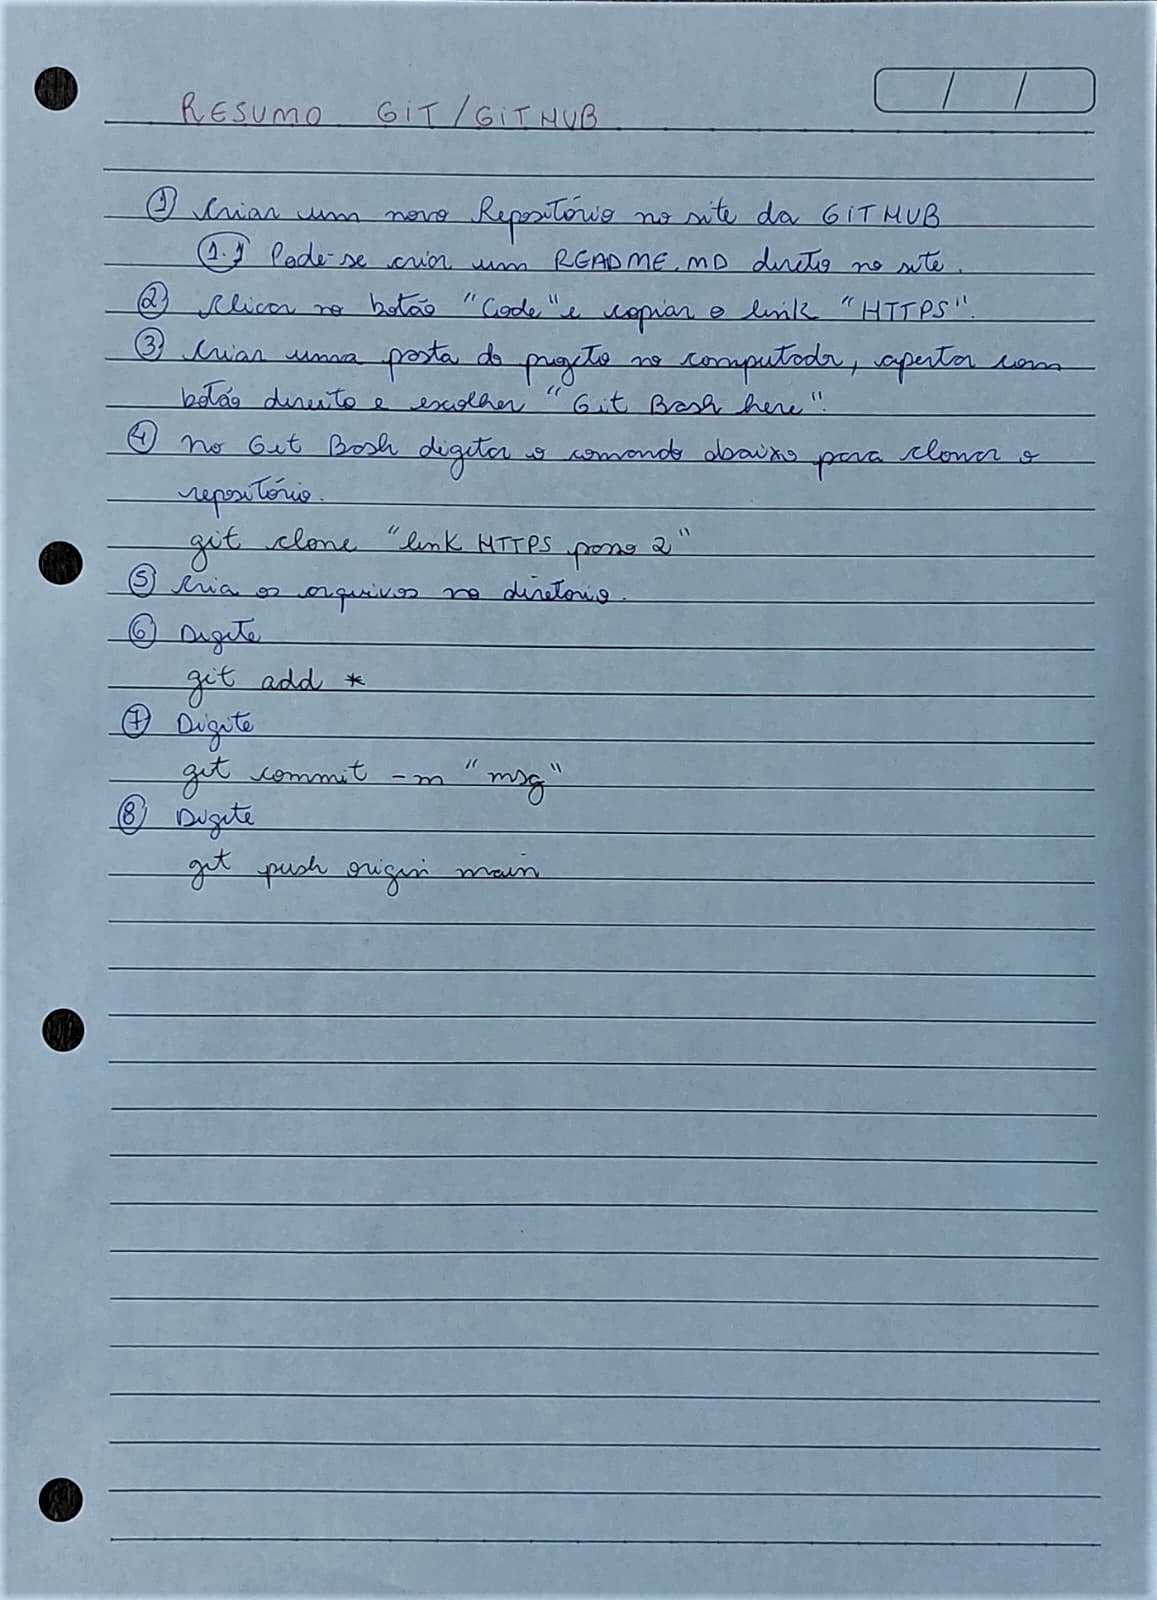 RESUMO GIT/GITHUB
/ /
1 Criar um novo Repositório no site da GITHUB
1.1 Pode-se criar um README.MD direto no site.
2 Clicar no botão "Code" e copiar o link "HTTPS".
3 Criar uma pasta do projeto no computador, apertar com
botão direito e escolher "Git Bash here".
4 No Git Bash digitar o comando abaixo para clonar o
repositório.
git clone "link HTTPS passo 2"
5 Cria os arquivos no diretorio.
6 Digite
git add *
7 Digite
git commit -m "msg"
8 Digite
git push origin main